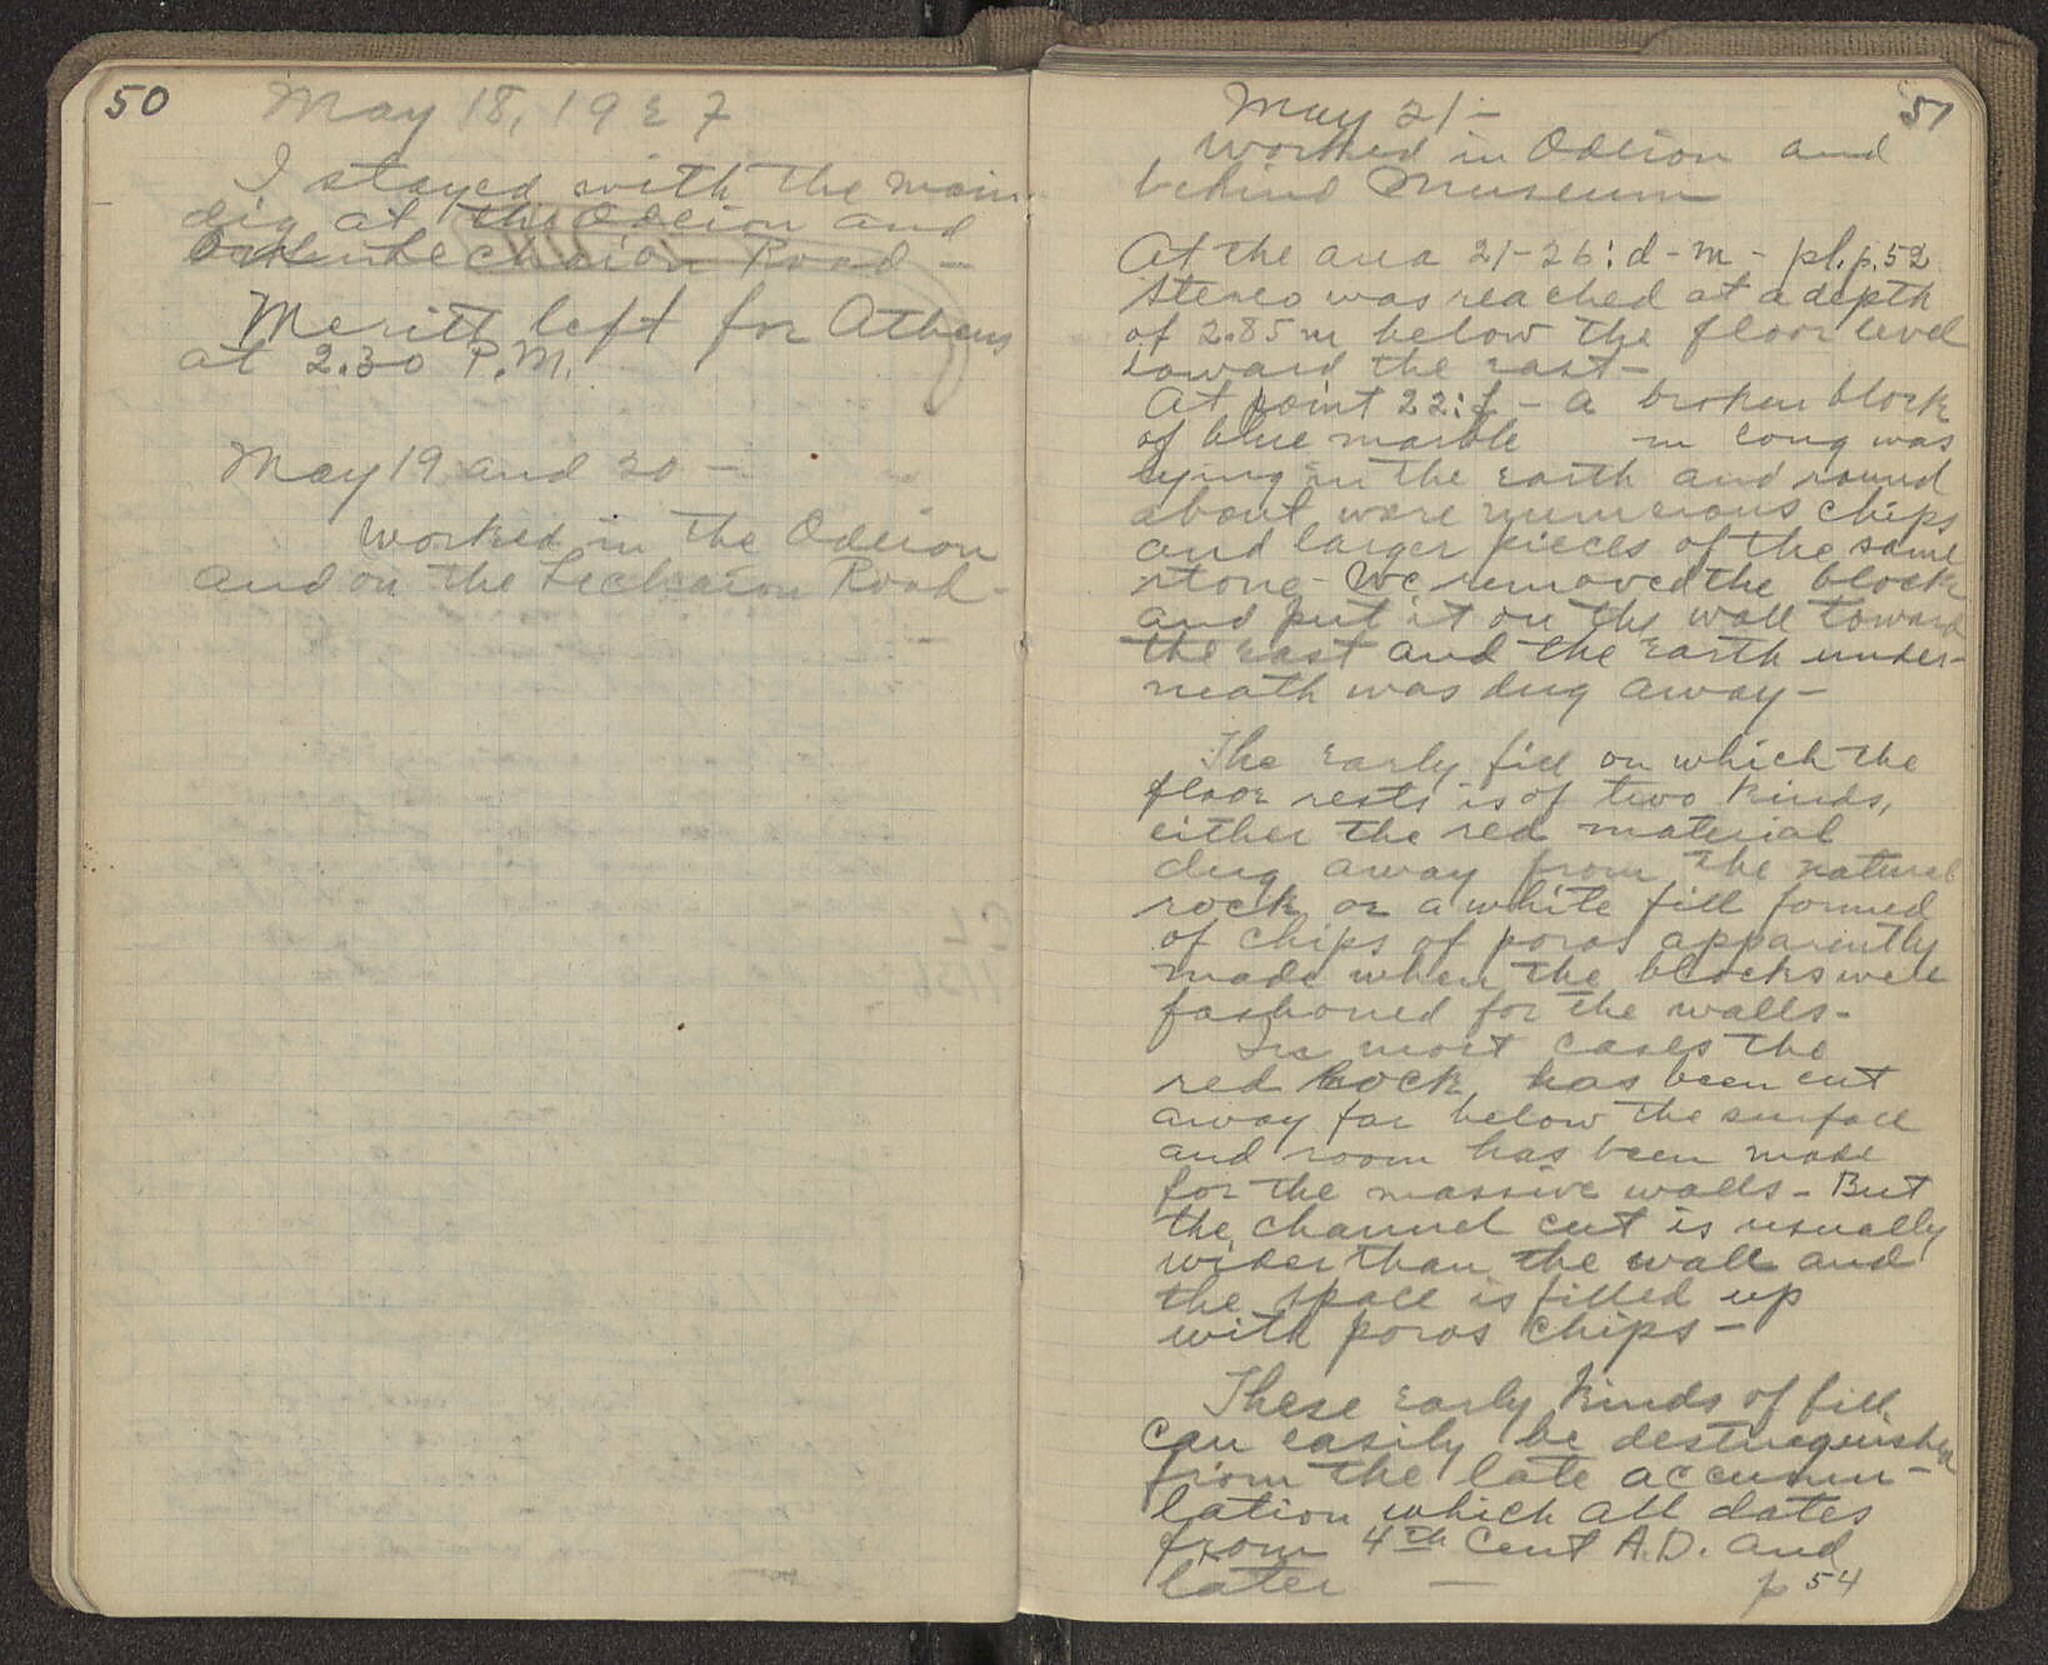 50
May 18, 1927
I stayed with the main
dig at the Odeion and
Lechaion Road -
Meritt left for Athens
at 2.30 P.M.
May 19 and 20 -
worked in the Odeion
and on the Lechaion Road -
51
May 21 -
worked in Odeion and
behind Museum
At the area 21-26: d-m - pl. p. 52
stereo was reached at a depth
of 2.85 m below the floor level
toward the east -
At point 22:f - a broken block
of blue marble m long was
lying in the earth and round
about were numerous chips
and larger pieces of the same
stone - We removed the block
and put it on the wall toward
the east and the earth under-
neath was dug away -
The early fill on which the
floor rests is of two kinds,
either the red material
dug away from the natural
rock or a white fill formed
of chips of poros apparently
made when the blocks were
fashioned for the walls -
In most cases the
red rock has been cut
away far below the surface
and room has been made
for the massive walls - But
the channel cut is usually
wider than the wall and
the space is filled up
with poros chips -
These early kinds of fill
can easily be destinguished
from the late accumu-
lation which all dates
from 4th Cent A.D. and
later -
p 54